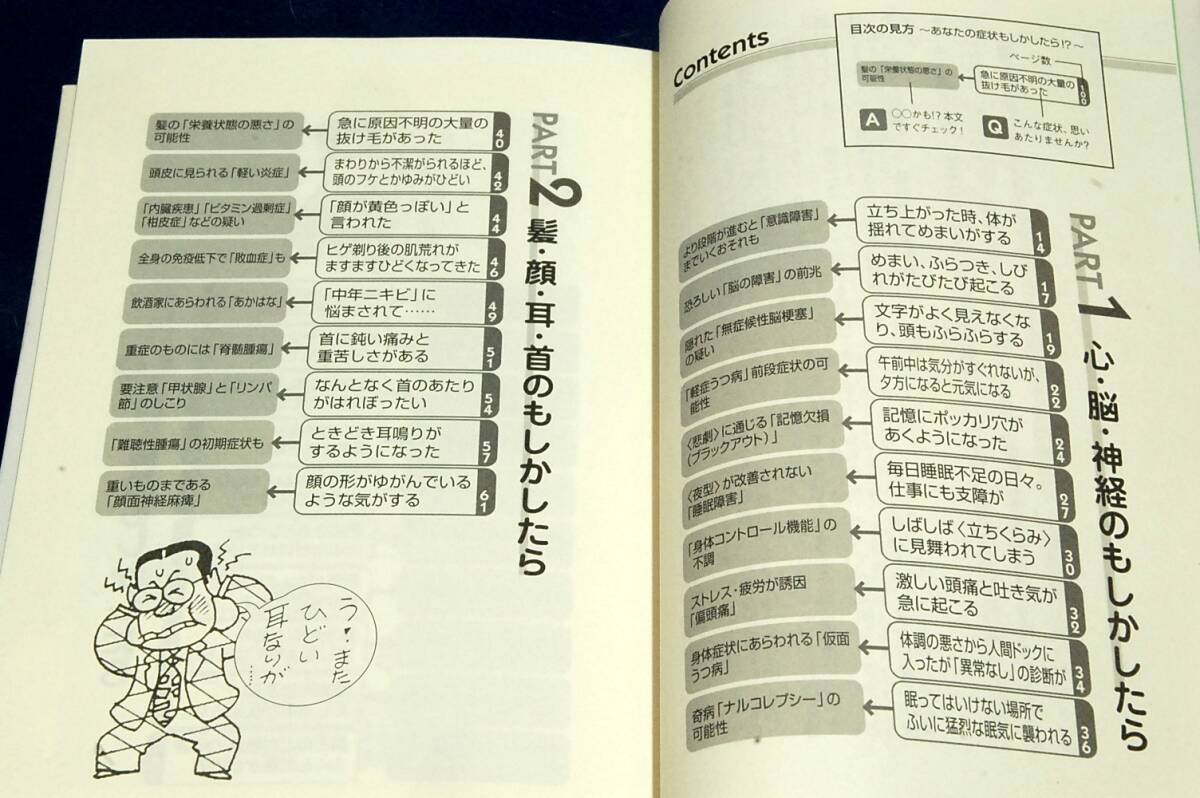 Contents
目次の見方 〜あなたの症状もしかしたら!?〜
ページ数
髪の「栄養状態の悪さ」の
可能性
急に原因不明の大量の
抜け毛があった
100
A
○○かも!? 本文
ですぐチェック！
Q
こんな症状、思い
あたりませんか?
PART 1
心・脳・神経のもしかしたら
立ち上がった時、体が
揺れてめまいがする
14
より段階が進むと「意識障害」
までいくおそれも
めまい、ふらつき、しび
れがたびたび起こる
17
恐ろしい「脳の障害」の前兆
文字がよく見えなくな
り、頭もふらふらする
19
隠れた「無症候性脳梗塞」
の疑い
午前中は気分がすぐれないが、
夕方になると元気になる
22
「軽症うつ病」前段症状の可
能性
記憶にポッカリ穴が
あくようになった
24
〈悲劇〉に通じる「記憶欠損
(ブラックアウト)」
毎日睡眠不足の日々。
仕事にも支障が
27
〈夜型〉が改善されない
「睡眠障害」
しばしば〈立ちくらみ〉
に見舞われてしまう
30
「身体コントロール機能」の
不調
激しい頭痛と吐き気が
急に起こる
32
ストレス・疲労が誘因
「偏頭痛」
体調の悪さから人間ドックに
入ったが「異常なし」の診断が
34
身体症状にあらわれる「仮面
うつ病」
眠ってはいけない場所で
ふいに猛烈な眠気に襲われる
36
奇病「ナルコレプシー」の
可能性
PART 2
髪・顔・耳・首のもしかしたら
急に原因不明の大量の
抜け毛があった
40
髪の「栄養状態の悪さ」の
可能性
まわりから不潔がられるほど、
頭のフケとかゆみがひどい
42
頭皮に見られる「軽い炎症」
「顔が黄色っぽい」と
言われた
44
「内臓疾患」「ビタミン過剰症」
「柑皮症」などの疑い
ヒゲ剃り後の肌荒れが
ますますひどくなってきた
46
全身の免疫低下で「敗血症」も
「中年ニキビ」に
悩まされて……
49
飲酒家にあらわれる「あかはな」
首に鈍い痛みと
重苦しさがある
51
重症のものには「脊髄腫瘍」
なんとなく首のあたり
がはれぼったい
54
要注意「甲状腺」と「リンパ
節」のしこり
ときどき耳鳴りが
するようになった
57
「難聴性腫瘍」の初期症状も
顔の形がゆがんでいる
ような気がする
61
重いものまである
「顔面神経麻痺」
う・・また
ひどい
耳なりが
……